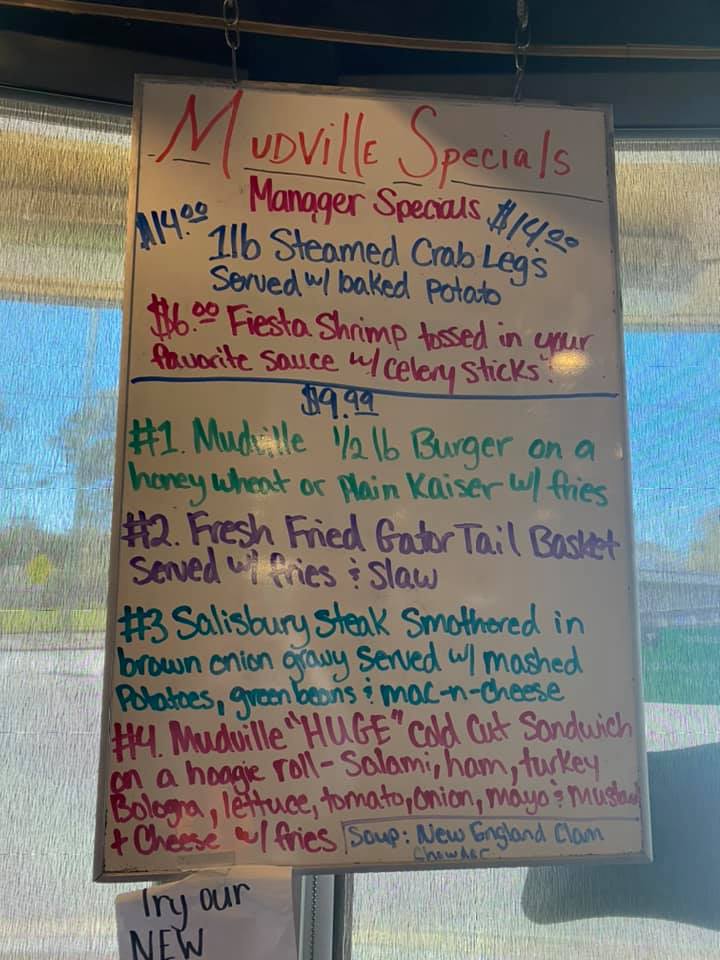 Mudville Specials
Manager Specials
$14.00 $14.00
1lb Steamed Crab Legs
Served w/ baked potato
$6.00 Fiesta Shrimp tossed in your
favorite sauce w/ celery sticks!
$9.99
#1. Mudville 1/2 lb Burger on a
honey wheat or Plain Kaiser w/ fries
#2. Fresh Fried Gator Tail Basket
Served w/ fries & Slaw
#3 Salisbury Steak Smothered in
brown onion gravy Served w/ mashed
Potatoes, green beans & mac-n-cheese
#4. Mudville "HUGE" Cold Cut Sandwich
on a hoagie roll - Salami, ham, turkey
Bologna, lettuce, tomato, onion, mayo & Mustard
+ Cheese w/ fries
Soup: New England Clam
Chowder
Try our
NEW